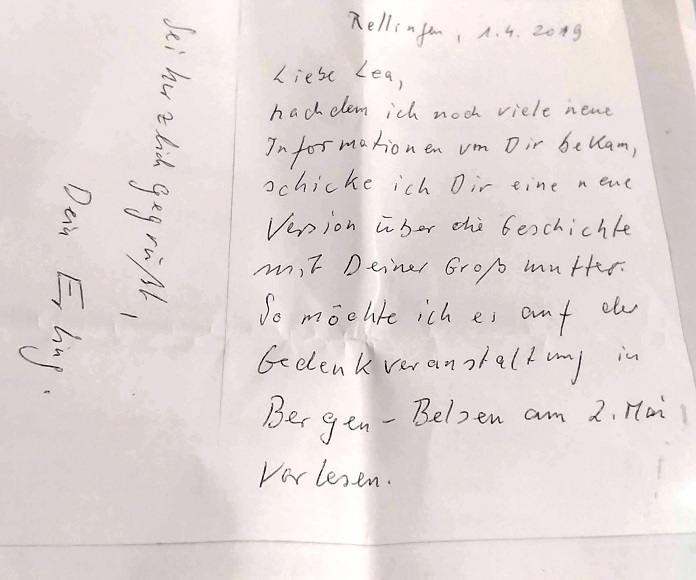 Rellingen, 1.4. 2019
Liebe Lea,
nachdem ich noch viele neue
Informationen von Dir bekam,
schicke ich Dir eine neue
Version über die Geschichte
mit Deiner Großmutter.
So möchte ich es auf der
Gedenkveranstaltung in
Bergen-Belsen am 2. Mai
vorlesen.
Sei herzlich gegrüßt,
Dein Erling.